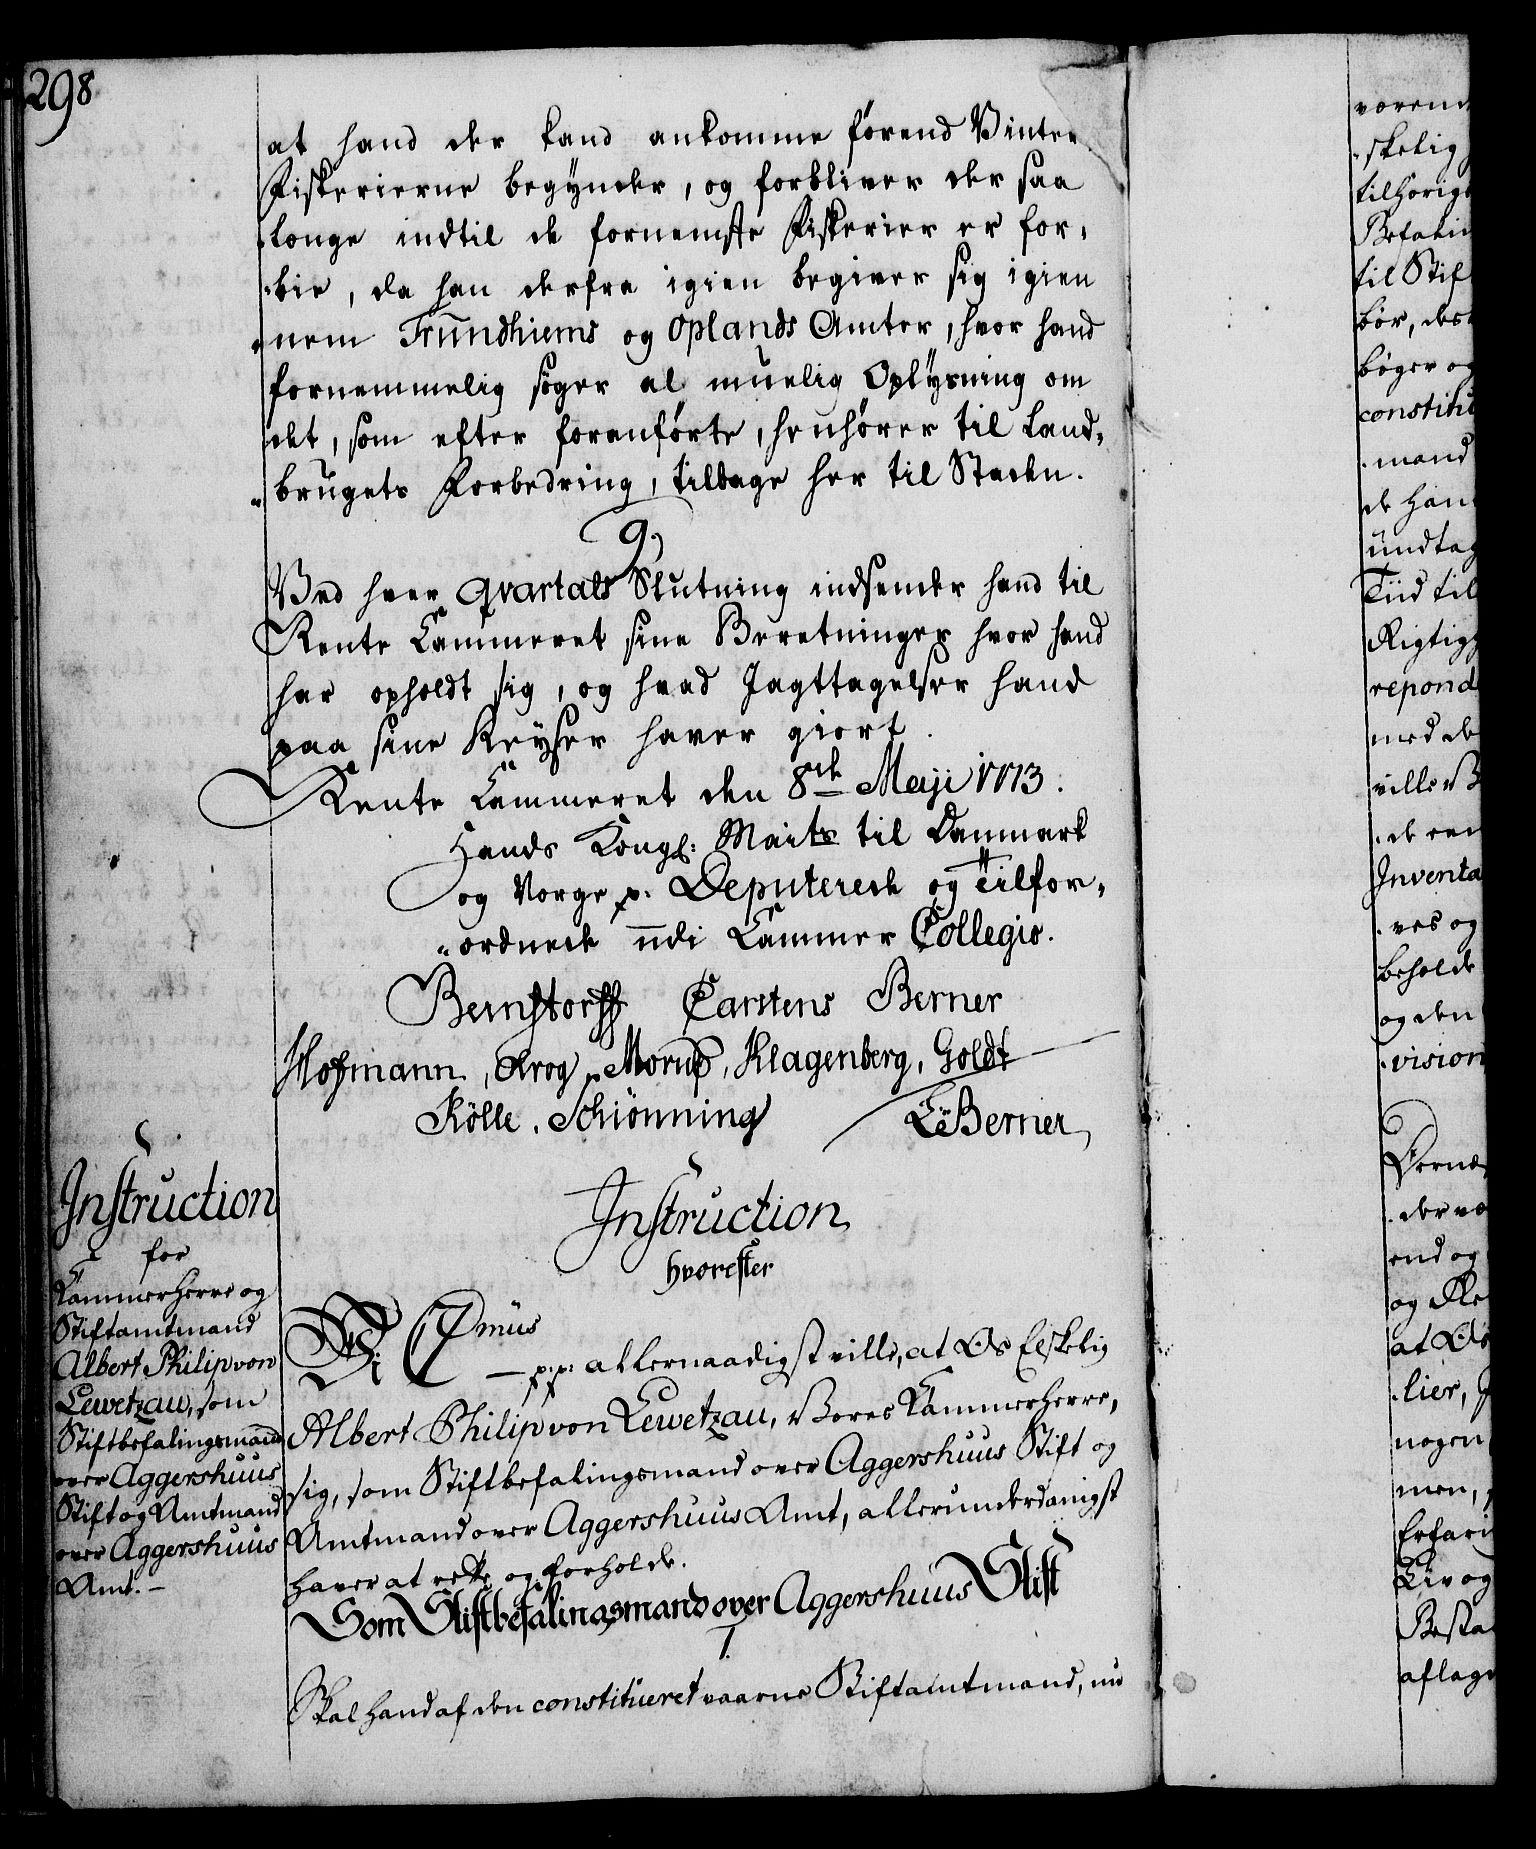 298
at hand der kand ankomme förend Vinter
Fiskerierne begynder, og forbliver der saa
længe indtil de fornemste Fiskerier er for-
bie, da han derfra igien begiver sig igien
nem Trundhiems og Oplands Amter, hvor hand
fornemmelig söger al muelig Oplysning om
det, som efter foranförte, henhörer til Land-
brugets Forbedring, tilbage her til Staden.
9.
Ved hver Qvartals Slutning indsender hand til
Rente Cammeret sine Beretninger hvor hand
har opholdt sig, og hvad Jagttagelser hand
paa sine Reyser haver giort.
Rente Cammeret den 8de Maji 1773.
Hands Kongl: Maits til Danmark
og Norge p. Deputerede og Tilfor-
ordnede udi Cammer Collegio.
Bernstorff Carstens Berner
Hofmann, Krog, Morup, Klagenberg, Goldt
Kölle. Schiönning
Berner
Instruction
for
Kammerherre og
Stiftamtmand
Albert Philip von
Lewetzau, som
Stiftbefalingsmand
over Aggershuus
Stift og Amtmand
over Aggershuus
Amt.-
Instruction
hvorefter
Wi C 7mus
p: p: allernaadigst ville, at Os Elskelig
Albert Philip von Lewetzau, Vores Kammerherre,
sig, som Stiftbefalingsmand over Aggershuus Stift og
Amtmand over Aggershuus Amt, allerunderdanigst
haver at rette og forholde.
Som Stiftbefalingsmand over Aggershuus Stift
1.
Skal hand af den constitueret vaarne Stiftamtmand, nu
værend
skelig
tilhörig
Befali
til Stif
bör, des
böger og
constitu
mand
de han
undtag
Tiid til
Rigtig
repond
med de
ville
de een
Inventa
ves og
beholde
og den
vision
Derne
der væ
end og
og
at Os
lier,
nogen
men,
Erfari
Liv og
Besta
aflag